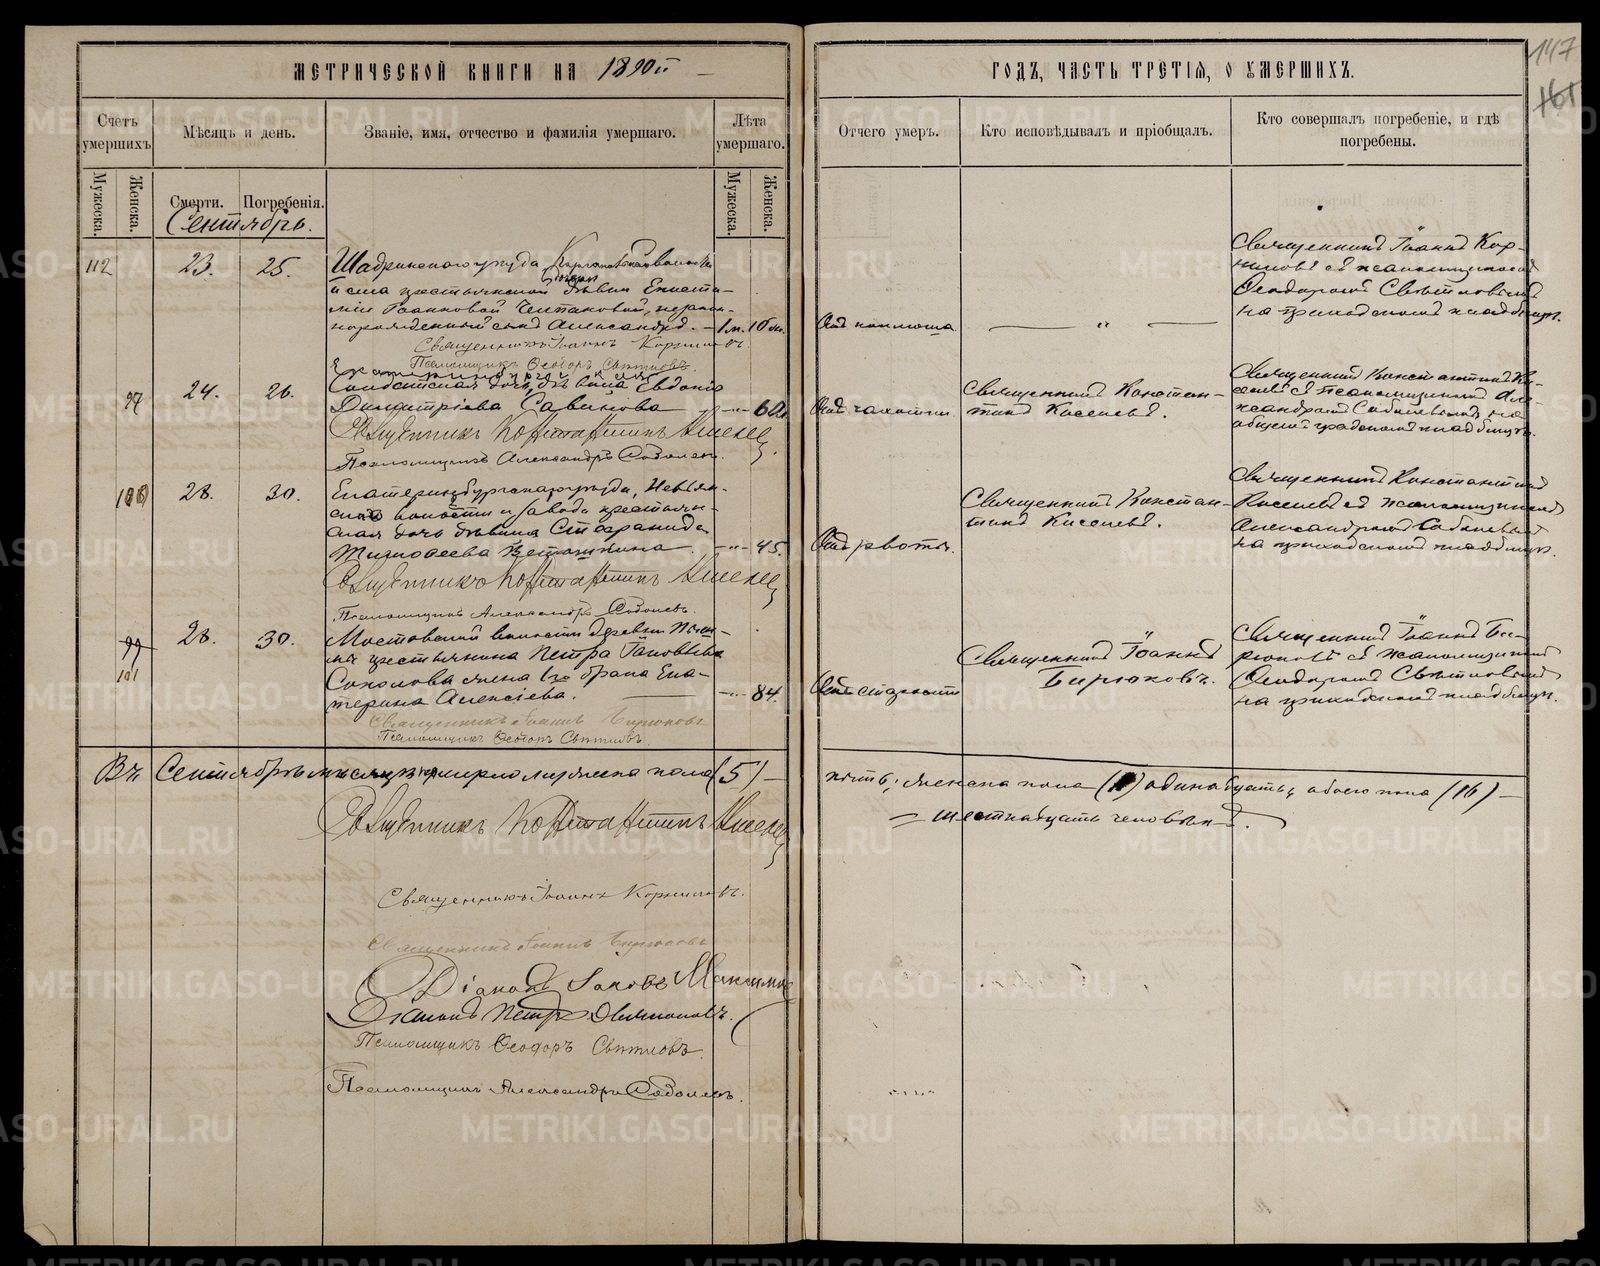 МЕТРИЧЕСКОЙ КНИГИ НА 1890й
ГОДЪ, ЧАСТЬ ТРЕТІЯ, О УМЕРШИХЪ.
147
Счетъ умершихъ
Мѣсяцъ и день.
Званіе, имя, отчество и фамилія умершаго.
Лѣта умершаго.
Отчего умеръ.
Кто исповѣдывалъ и пріобщалъ.
Кто совершалъ погребеніе, и гдѣ погребены.
Мужеска.
Женска.
Смерти.
Погребенія.
Мужеска.
Женска.
Сентябрь.
112
23.
25.
Шадринскаго уѣзда
села крестьянской дѣвки Еписти-
міи Іоанновой незакон-
норожденный сынъ Александръ. — 1 м. 10 дн.
Священникъ Іоаннъ Корниловъ.
Псаломщикъ Ѳеодоръ Свѣтловъ.
Отъ поноса
— " —
Священникъ Іоаннъ Кор-
ниловъ съ псаломщикомъ
Ѳеодоромъ Свѣтловымъ
на приходскомъ кладбищѣ.
97
24.
26.
Солдатская дочь дѣвица Евдокія
Димитріева Савинова — " — 60
Священникъ Константинъ Киселевъ.
Псаломщикъ Александръ Соболевъ.
Отъ чахотки
Священникъ Констан-
тинъ Киселевъ.
Священникъ Константинъ Ки-
селевъ съ псаломщикомъ Але-
ксандромъ Соболевымъ на
общемъ градскомъ кладбищѣ.
100
28.
30.
Екатеринбургскаго уѣзда, Невьян-
ской волости и завода крестьян-
ская дочь дѣвица Стефанида
Тимофеева — " — 45.
Священникъ Константинъ Киселевъ
Псаломщикъ Александръ Соболевъ.
Отъ рвоты.
Священникъ Констан-
тинъ Киселевъ.
Священникъ Константинъ
Киселевъ съ псаломщикомъ
Александромъ Соболевымъ
на приходскомъ кладбищѣ.
99
101
28.
30.
Мостовской волости деревни
крестьянина Петра Іаковлева
Соколова жена 1го брака Ека-
терина Алексіева. — " — 84.
Священникъ Іоаннъ Бирюковъ
Псаломщикъ Ѳеодоръ Свѣтловъ.
Отъ старости
Священникъ Іоаннъ
Бирюковъ.
Священникъ Іоаннъ Би-
рюковъ съ псаломщикомъ
Ѳеодоромъ Свѣтловымъ
на приходскомъ кладбищѣ.
Въ Сентябрѣ мѣсяцѣ умерло мужеска пола (5) —
пять; женска пола (11) одинадцать; обоего пола (16) —
— шестнадцать человѣкъ.
Священникъ Константинъ Киселевъ
Священникъ Іоаннъ Корниловъ.
Священникъ Іоаннъ Бирюковъ
Діаконъ Іаковъ
Діаконъ Петръ
Псаломщикъ Ѳеодоръ Свѣтловъ.
Псаломщикъ Александръ Соболевъ.
METRIKI.GASO-URAL.RU